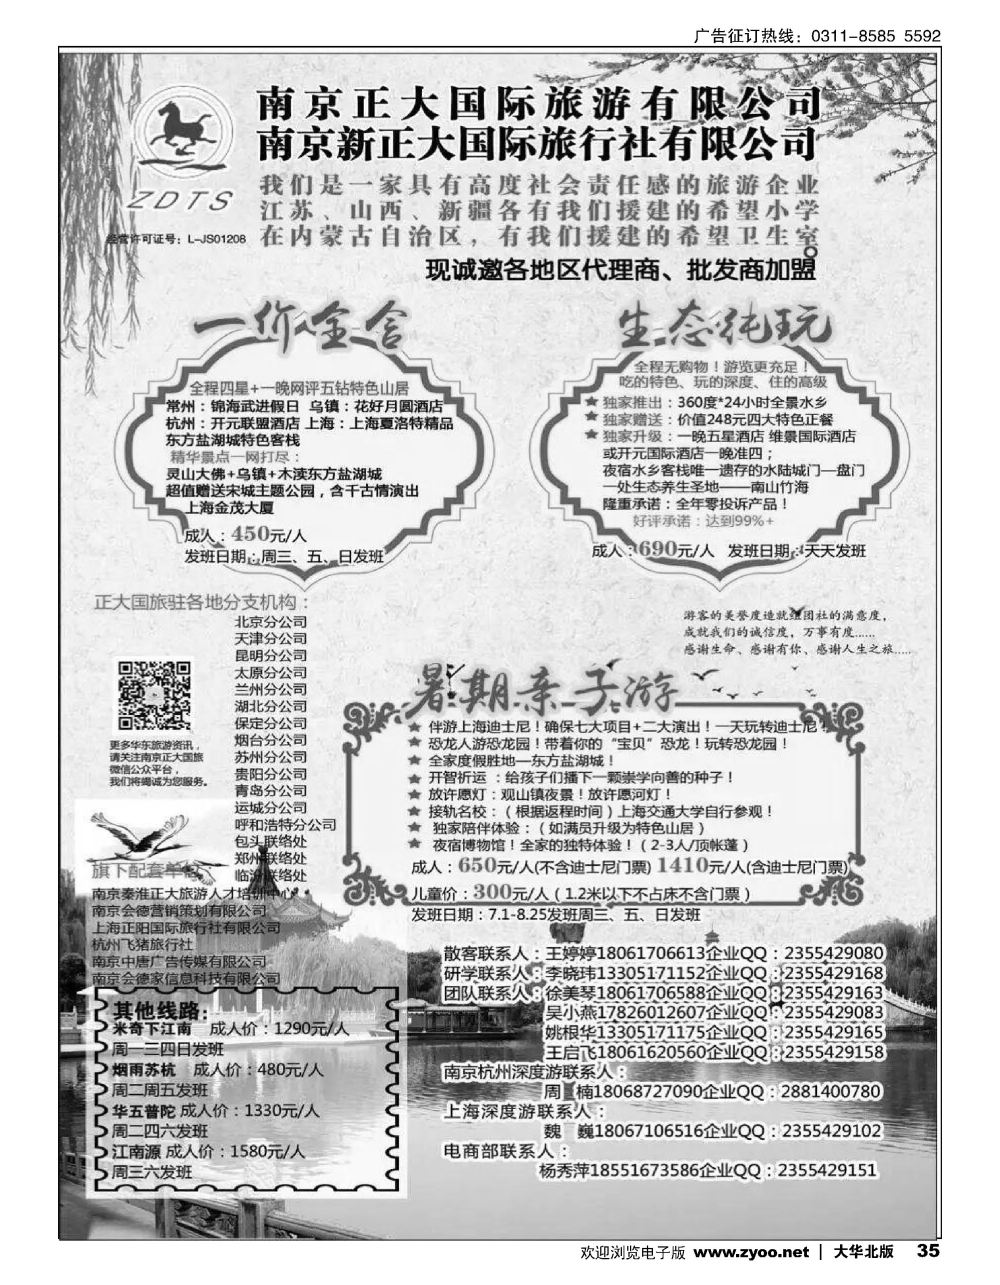 广告征订热线：0311-8585 5592
南京正大国际旅游有限公司
南京新正大国际旅行社有限公司
ZDTS
经营许可证号：L-JS01208
我们是一家具有高度社会责任感的旅游企业
江苏、山西、新疆各有我们援建的希望小学
在内蒙古自治区，有我们援建的希望卫生室。
现诚邀各地区代理商、批发商加盟
一价全含
全程四星+一晚网评五钻特色山居
常州：锦海武进假日 乌镇：花好月圆酒店
杭州：开元联盟酒店 上海：上海夏洛特精品
东方盐湖城特色客栈
精华景点一网打尽：
灵山大佛+乌镇+木渎东方盐湖城
超值赠送宋城主题公园，含千古情演出
上海金茂大厦
成人：450元/人
发班日期：周三、五、日发班
生态纯玩
全程无购物！游览更充足！
吃的特色、玩的深度、住的高级
★ 独家推出：360度*24小时全景水乡
★ 独家赠送：价值248元四大特色正餐
★ 独家升级：一晚五星酒店 维景国际酒店
或开元国际酒店一晚准四；
夜宿水乡客栈唯一遗存的水陆城门—盘门
一处生态养生圣地——南山竹海
隆重承诺：全年零投诉产品！
好评承诺：达到99%+
成人：690元/人 发班日期：天天发班
正大国旅驻各地分支机构：
北京分公司
天津分公司
昆明分公司
太原分公司
兰州分公司
湖北分公司
保定分公司
烟台分公司
苏州分公司
贵阳分公司
青岛分公司
运城分公司
呼和浩特分公司
包头联络处
郑州联络处
临汾联络处
更多华东旅游资讯，
请关注南京正大国旅
微信公众平台，
我们将竭诚为您服务。
旗下配套单位
南京秦淮正大旅游人才培训中心
南京会德营销策划有限公司
上海正阳国际旅行社有限公司
杭州飞猪旅行社
南京中唐广告传媒有限公司
南京会德家信息科技有限公司
游客的美誉度造就组团社的满意度，
成就我们的诚信度，万事有度......
感谢生命、感谢有你、感谢人生之旅.....
暑期亲子游
★ 伴游上海迪士尼！确保七大项目+二大演出！一天玩转迪士尼！
★ 恐龙人游恐龙园！带着你的“宝贝”恐龙！玩转恐龙园！
★ 全家度假胜地—东方盐湖城！
★ 开智祈运：给孩子们播下一颗崇学向善的种子！
★ 放许愿灯：观山镇夜景！放许愿河灯！
★ 接轨名校：（根据返程时间）上海交通大学自行参观！
★ 独家陪伴体验：（如满员升级为特色山居）
★ 夜宿博物馆！全家的独特体验！（2-3人/顶帐蓬）
成人：650元/人(不含迪士尼门票) 1410元/人(含迪士尼门票)
儿童价：300元/人（1.2米以下不占床不含门票）
发班日期：7.1-8.25发班周三、五、日发班
其他线路：
米奇下江南 成人价：1290元/人
周一三四日发班
烟雨苏杭 成人价：480元/人
周二周五发班
华五普陀 成人价：1330元/人
周二四六发班
江南源 成人价：1580元/人
周三六发班
散客联系人：王婷婷18061706613企业QQ：2355429080
研学联系人：李晓玮13305171152企业QQ：2355429168
团队联系人：徐美琴18061706588企业QQ：2355429163
吴小燕17826012607企业QQ：2355429083
姚根华13305171175企业QQ：2355429165
王启飞18061620560企业QQ：2355429158
南京杭州深度游联系人：
周 楠18068727090企业QQ：2881400780
上海深度游联系人：
魏 巍18067106516企业QQ：2355429102
电商部联系人：
杨秀萍18551673586企业QQ：2355429151
欢迎浏览电子版 www.zyoo.net | 大华北版 35